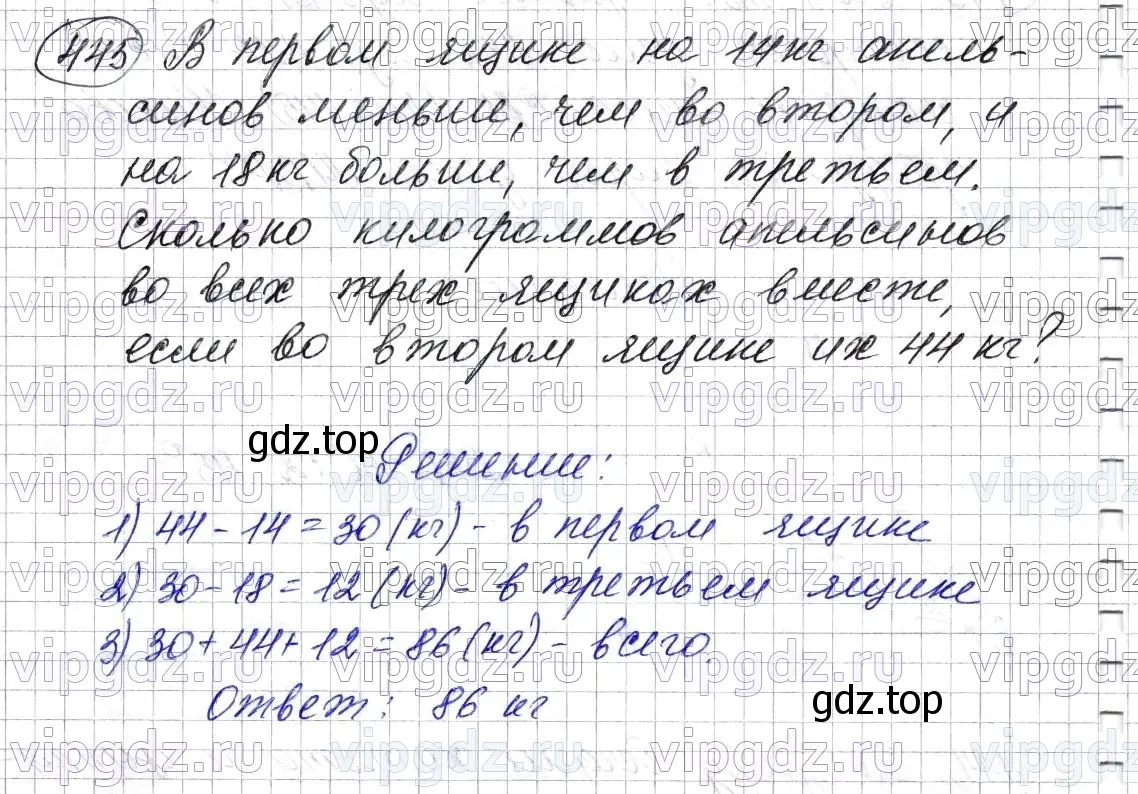 445 В первом ящике на 14 кг апель-
синов меньше, чем во втором, и
на 18 кг больше, чем в третьем.
Сколько килограммов апельсинов
во всех трех ящиках вместе,
если во втором ящике их 44 кг?
gdz.top
Решение:
1) 44 - 14 = 30 (кг) - в первом ящике
2) 30 - 18 = 12 (кг) - в третьем ящике
3) 30 + 44 + 12 = 86 (кг) - всего.
Ответ: 86 кг
gdz.top
vipgdz.ru